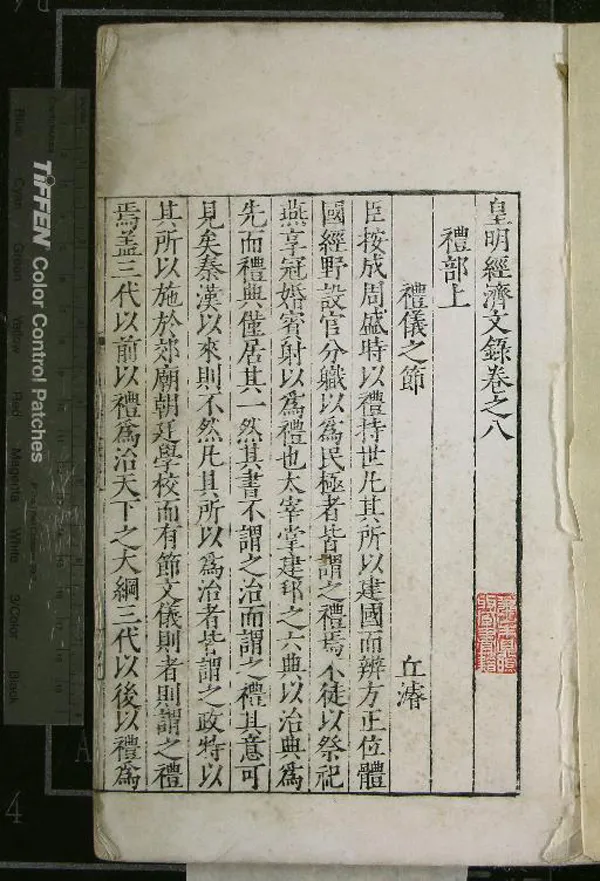 皇明經濟文錄卷之八
禮部上
禮儀之節 丘濬
臣按成周盛時以禮持世凡其所以建國而辨方正位體
國經野設官分職以為民極者皆謂之禮焉不徒以祭祀
燕享冠婚賓射以為禮也太宰掌建邦之六典以治典為
先而禮典僅居其一然其書不謂之治而謂之禮其意可
見矣秦漢以來則不然凡其所以為治者皆謂之政特以
其所以施於郊廟朝廷學校而有節文儀則者則謂之禮
焉盖三代以前以禮為治天下之大綱三代以後以禮為
TIFFEN Color Control Patches
Blue
Cyan
Green
Yellow
Red
Magenta
White
3/Color
Black
4
A